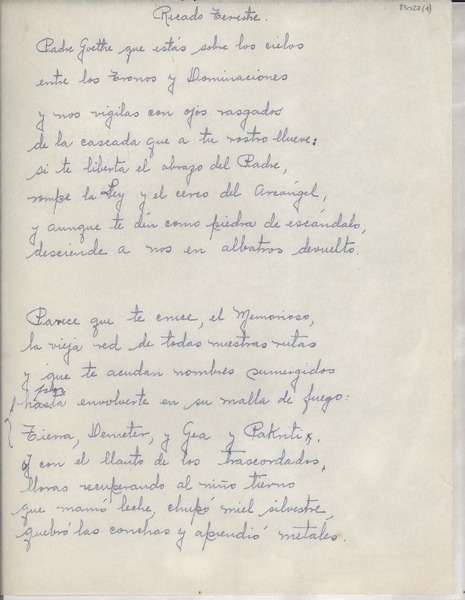 Recado Terrestre.
13027(1)
Padre Goethe que estás sobre los cielos
entre los Tronos y Dominaciones
y nos vigilas con ojos rasgados
de la cascada que a tu rostro llueve:
si te liberta el abrazo del Padre,
rompe la Ley y el cerco del Arcángel,
y aunque te den como piedra de escándalo,
desciende a nos en albatros devuelto.
Parece que te cruce, el Memorioso,
la vieja red de todas nuestras rutas
y que te acudan nombres sumergidos
hasta envolverte en su malla de fuego:
Tierra, Demeter, y Gea y Pakriti.
y con el llanto de los trascordados,
lloras recuperando al niño tierno
que mamó leche, chupó miel silvestre,
quebró las conchas y aprendió metales.